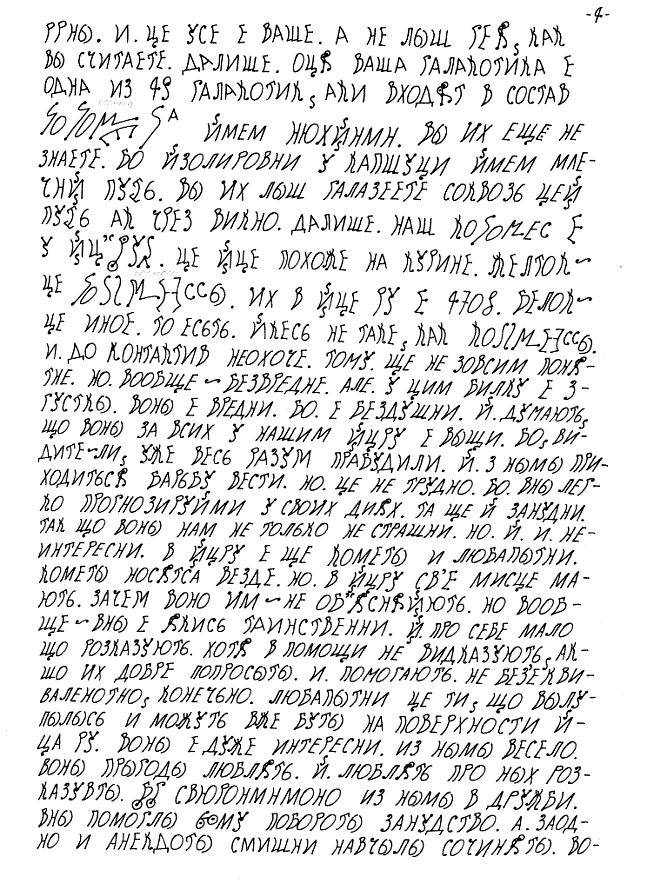 -4-
РРНЫ. И. ЦЕ УСЕ Е ВАШЕ. А НЕ ЛЫШ ГЕЯ, КАК
ВЫ СЧИТАЕТЕ. ДАЛИШЕ. ОЦЯ ВАША ГАЛАКОТИКА Е
ОДНА ИЗ 49 ГАЛАКОТИК, АКИ ВХОДЯТ В СОСТАВ
ЙМЕМ НЮХЙНМН. ВЫ ИХ ЕЩЕ НЕ
ЗНАЕТЕ. БО ЙЗОЛИРОВНИ У КАПШУЦИ ЙМЕМ МЛЕ-
ЧНЙ ПУТЬ. ВЫ ИХ ЛЫШ ГАЛАЗЕЕТЕ СОКВОЗЬ ЦЕЙ
ПУТЬ АК ЧРЕЗ ВИКНО. ДАЛИШЕ. НАШ Е
У ЙЦ"РУЯ. ЦЕ ЙЦЕ ПОХОЖЕ НА КУРИНЕ. ЖЕЛТОК~
ЦЕ ИХ В ЙЦЕ РУ Е 4708. БЕЛОК~
ЦЕ ИНОЕ. ТО ЕСЬТЬ. ЙКЕСЬ НЕ ТАКЕ, КАК
И. ДО КОНТАКТИВ НЕОХОЧЕ. ТОМУ. ЩЕ НЕ ЗОВСИМ ПОНЯ-
ТНЕ. НО. ВООБЩЕ ~ БЕЗВРЕДНЕ. АЛЕ. У ЦИМ БИЛКУ Е З-
ГУСТКЫ. ВОНЫ Е ВРЕДНИ. БО. Е БЕЗДУШНИ. Й. ДУМАЮТЬ,
ЩО ВОНЫ ЗА ВСИХ У НАШИМ ЙЦРУ Е ВЫЩИ. БО, ВИ-
ДИТЕ~ЛИ, УЖЕ ВЕСЬ РАЗУМ ПРАБУДИЛИ. Й. З НЫМЫ ПРИ-
ХОДИТЬСЯ БАРЬБУ ВЕСТИ. НО. ЦЕ НЕ ТРУДНО. БО. ВНЫ ЛЕГ-
КО ПРОГНОЗИРУЙМИ У СВОИХ ДИЯХ. ТА ЩЕ Й ЗАНУДНИ.
ТАК ЩО ВОНЫ НАМ НЕ ТОЛЬКО НЕ СТРАШНИ. НО. Й. И. НЕ-
ИНТЕРЕСНИ. В ЙЦРУ Е ЩЕ КОМЕТЫ И ЛЮБАПЫТНИ.
КОМЕТЫ НОСЯТСА ВЕЗДЕ. НО. В ЙЦРУ СВ'Е МИСЦЕ МА-
ЮТЬ. ЗАЧЕМ ВОНО ИМ ~ НЕ ОБ"ЯСНЯЙЮТЬ. НО ВООБ-
ЩЕ ~ ВНЫ Е ЯКИСЬ ТАИНСТВЕННИ. Й. ПРО СЕБЕ МАЛО
ЩО РОЗКАЗУЮТЬ. ХОТЯ В ПОМОЩИ НЕ ВИДКАЗУЮТЬ, АК-
ШО ИХ ДОБРЕ ПОПРОСЫТЫ. И. ПОМОГАЮТЬ. НЕ БЕЗ'ЕКВИ-
ВАЛЕНОТНО, КОНЕЧЬНО. ЛЮБАПЫТНИ ЦЕ ТИ, ЩО ВЫЛУ-
ПЫЛЫСЬ И МОЖУТЬ ВЖЕ БУТЫ НА ПОВЕРХНОСТИ Й-
ЦА РУ. ВОНЫ Е ДУЖЕ ИНТЕРЕСНИ. ИЗ НЫМЫ ВЕСЕЛО.
ВОНЫ ПРЫРОДЫ ЛЮБЛЯТЬ. Й. ЛЮБЛЯТЬ ПРО НЫХ РОЗ-
КАЗУВТЫ. СВЮРОНМНМОНО ИЗ НЫМЫ В ДРУЖБИ.
ВНЫ ПОМОГЛЫ ПОБОРОТЫ ЗАНУДСТВО. А. ЗАОД-
НО И АНЕКДОТЫ СМИШНИ НАВЧЫЛЫ СОЧИНЯТЫ. ВО-